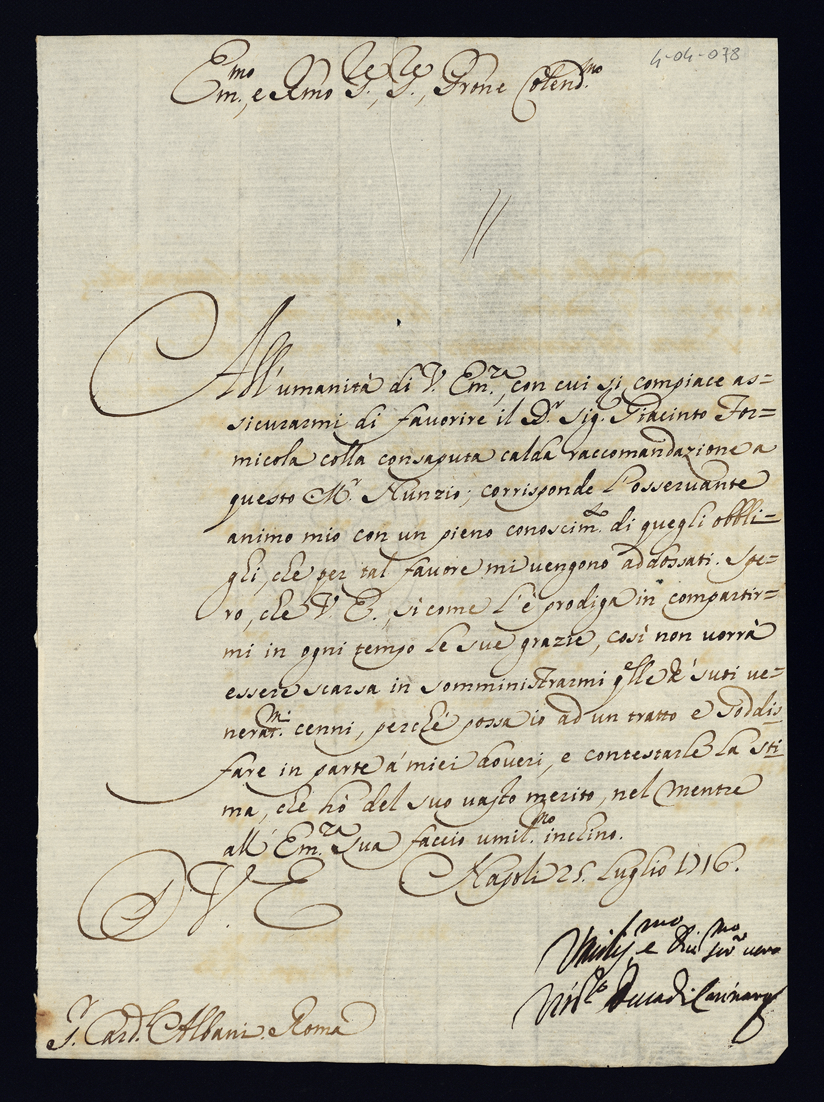 4-04-078
Em.mo, e Rmo Sre, Sre, Prone Colend.mo
All'umanità di V. Em.za, con cui si compiace as=
sicurarmi di favorire il D.r Sig. Giacinto For=
micola colla consaputa calda raccomandazione a
questo M.r Nunzio; corrisponde l'osseruante
animo mio con un pieno conoscim.to di quegli obbli=
ghi, che per tal favore mi vengono addossati. Spe=
ro, che V E., si come l'è prodiga in compartir=
mi in ogni tempo le sue grazie, così non vorrà
essere scarsa in somministrarmi qlle de' suoi ve=
nerat.mi cenni, perché possa io ad un tratto e soddis
fare in parte a' miei doveri, e contestarle la sti
ma, che hò del suo vasto merito, nel mentre
all' Em.za Sua faccio umil.mo inchino.
D V. E Napoli 25. Luglio 1716.
Umiliss.mo e Dev.mo ser.re vero
Duca di
S.r Card.l Albani. Roma